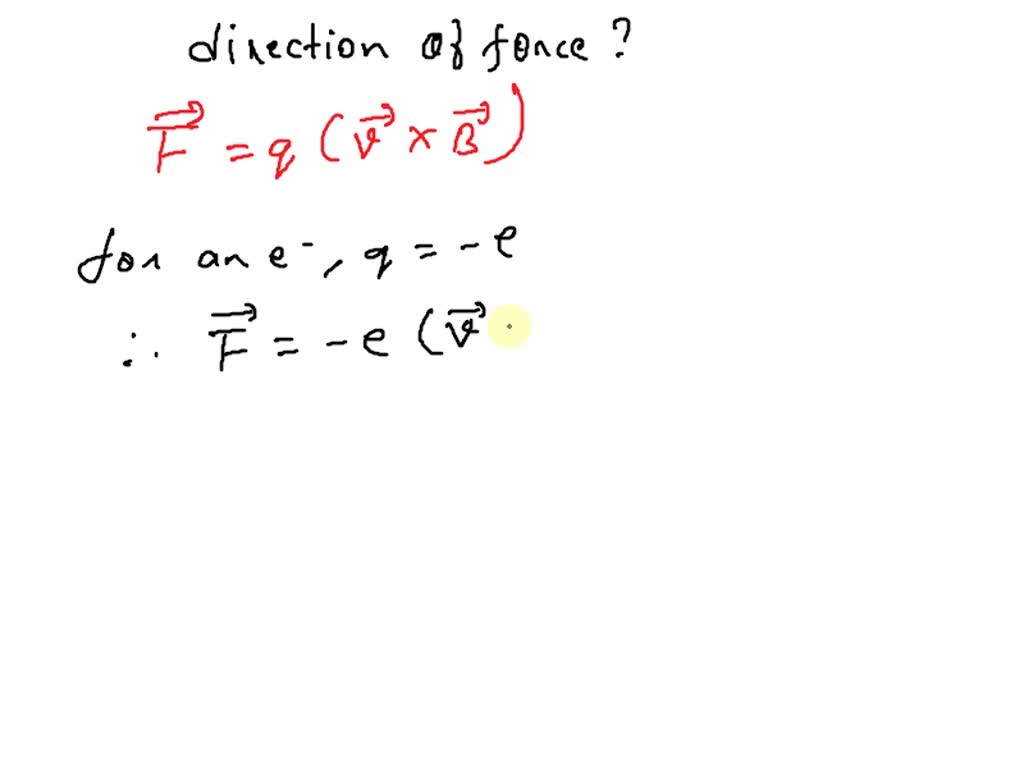 direction of force?
F⃗ = q (v⃗ × B⃗)
for an e⁻, q = -e
∴ F⃗ = -e (v⃗